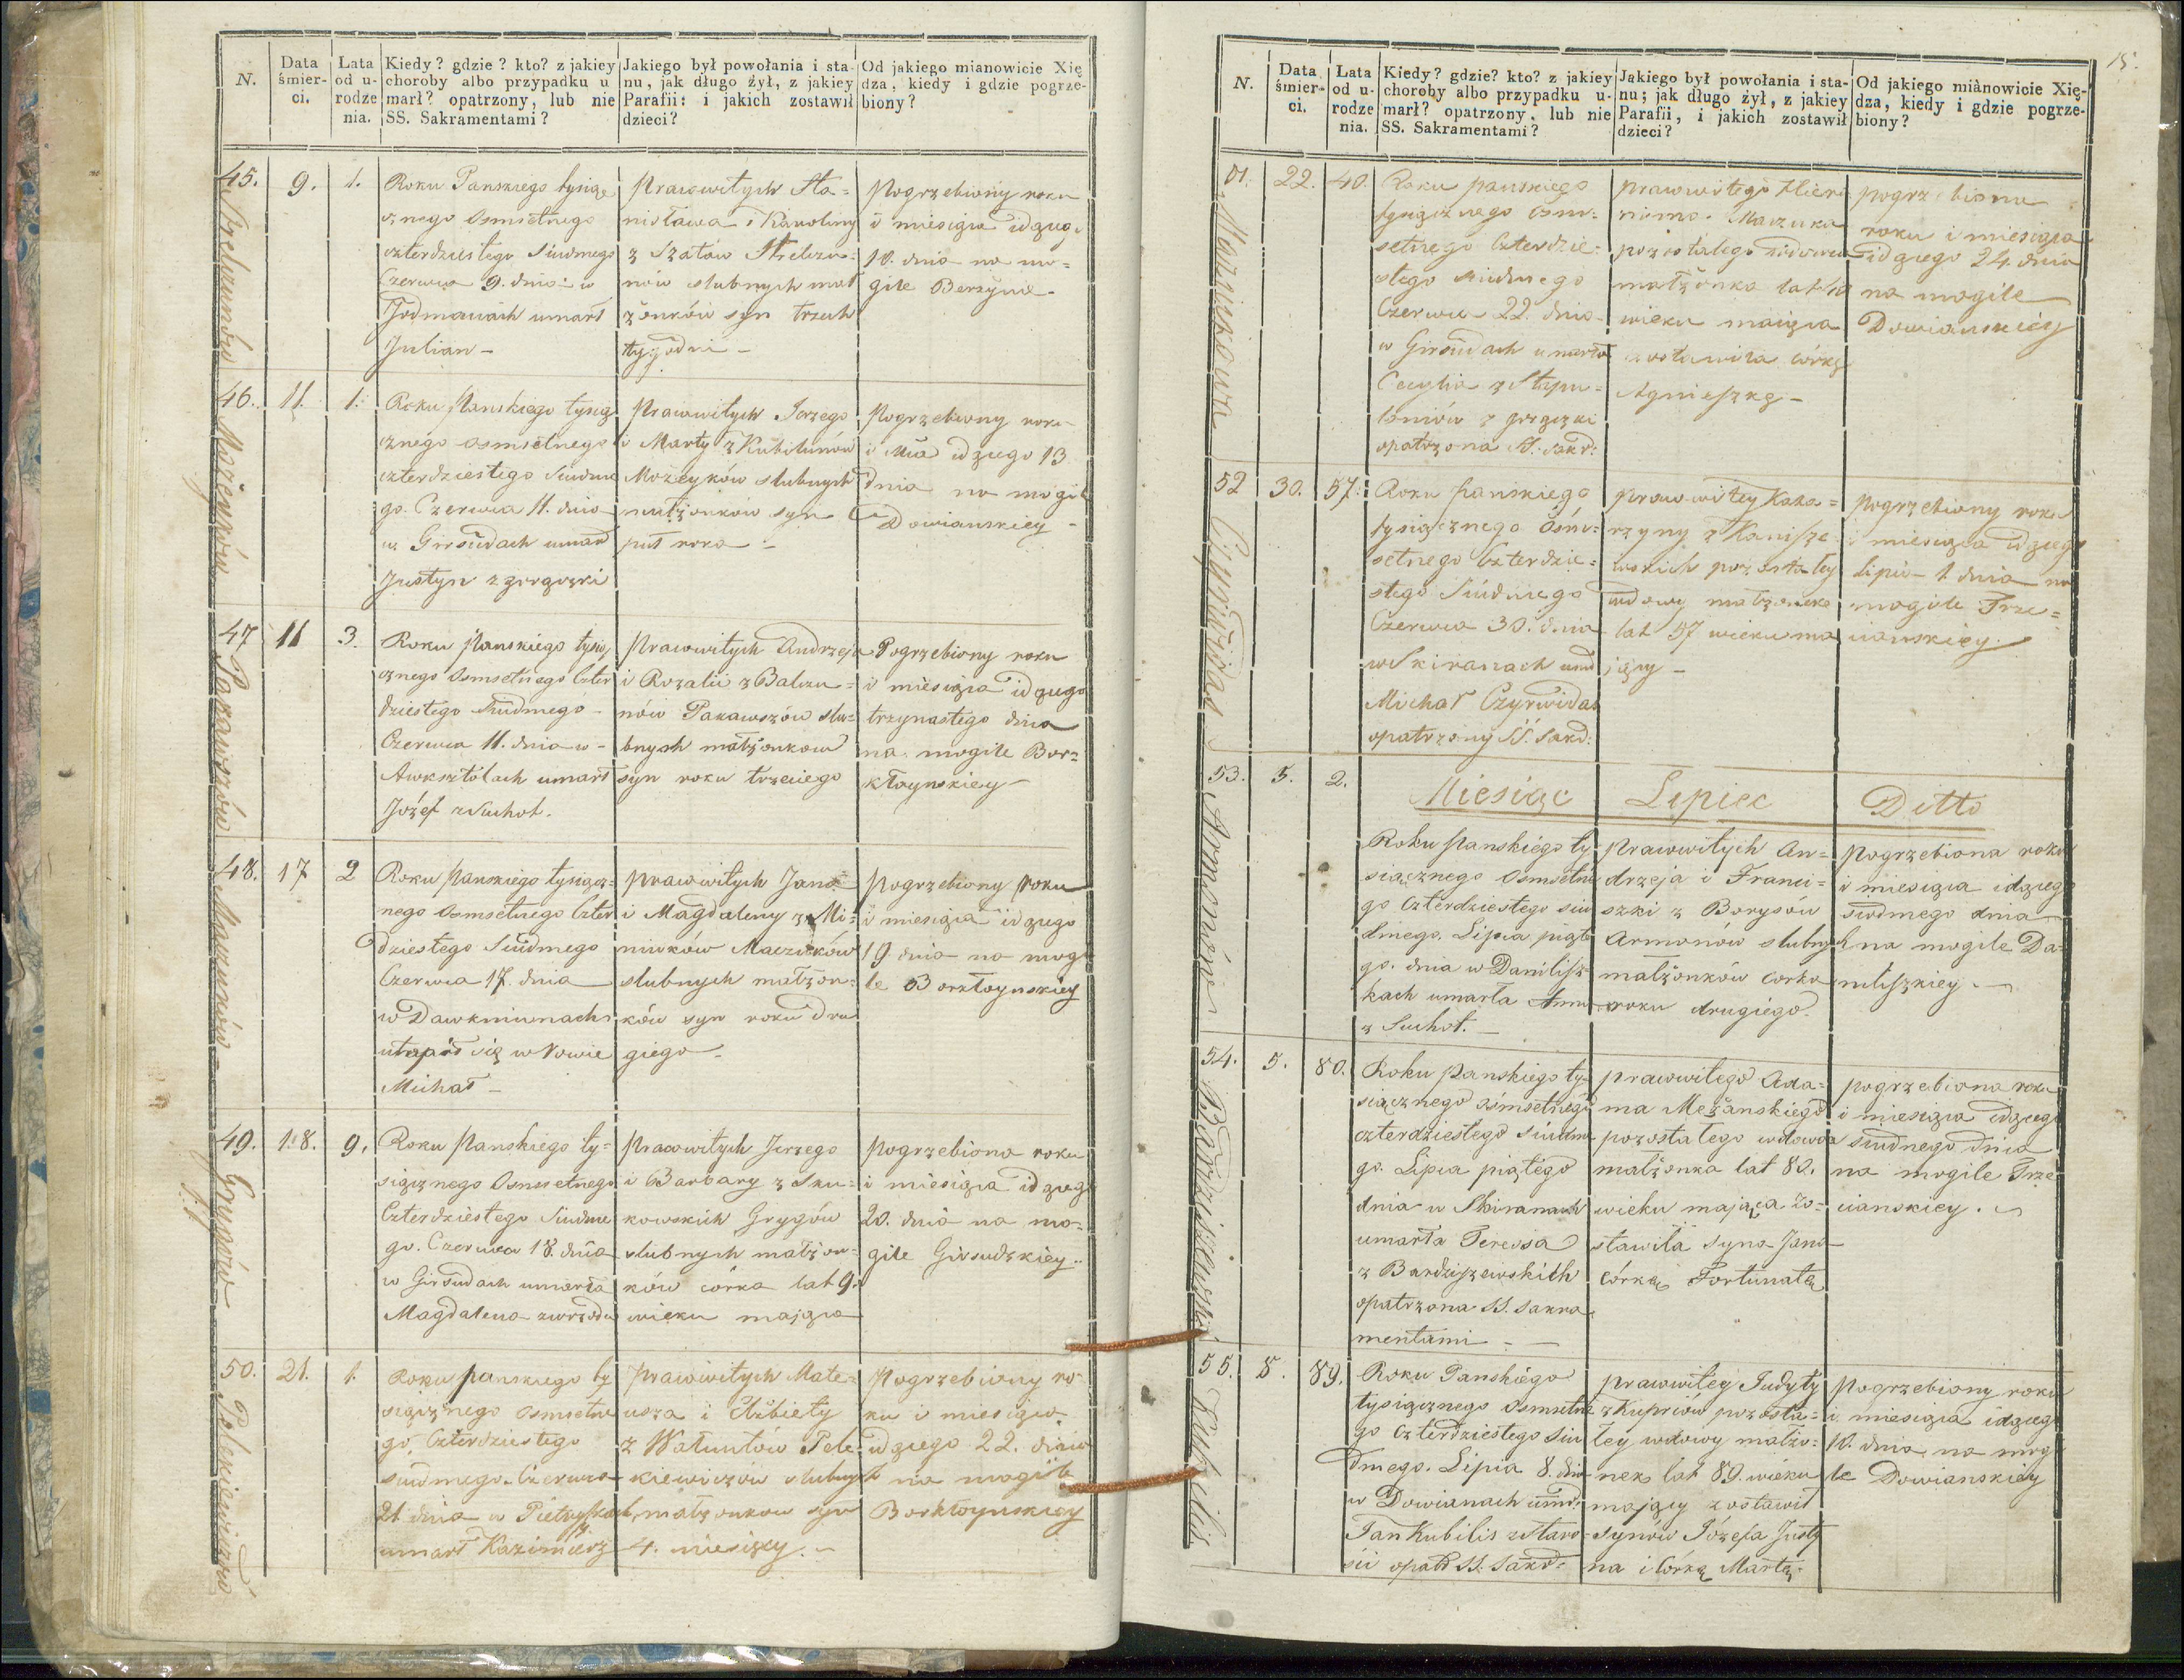 N.
Data śmierci.
Lata od urodzenia.
Kiedy? gdzie? kto? z jakiey
choroby albo przypadku u
marł? opatrzony, lub nie
SS. Sakramentami?
Jakiego był powołania i sta-
nu, jak długo żył, z jakiey
Parafii: i jakich zostawił
dzieci?
Od jakiego mianowicie Xię
dza, kiedy i gdzie pogrze-
biony?
45.
9.
1.
Roku Panskiego tysią
cznego Osmsetnego
czterdziestego Siudmego
Czerwca 9. dnia w
umarł
Julian –
Prawowitych Sta=
nisława i Karoliny
z Szatów
nów slubnych mał
żonków syn trzech
tygodni –
Pogrzebiony roku
i miesiąca idzugo
10. dnia na mo=
gile
46.
11.
1.
Mozeyków
Roku Panskiego tysią
cznego osmsetnego
czterdziestego Siudme
go. Czerwca 11. dnia
w Girsudach umarł
Justyn z gorączki
Prawowitych Jerzego
i Marty z Kubilunów
Mozeyków slubnych
małżonków syn
puł roka –
Pogrzebiony roku
i Mca idzugo 13
dnia na mogile
Dowianskiey –
47
11
3.
Pakawszów
Roku Panskiego tysią
cznego Osmsetnego Czter
dziestego Siudmego –
Czerwca 11. dnia w –
Awksztolach umarł
Józef z Suchot.
Prawowitych Andrzeja
i Rozalii z Balczu=
nów Pakawszów slu=
bnych małżonkow
syn roku trzeciego
Pogrzebiony roku
i miesiąca idzugo
trzynastego dnia
na mogile Bor=
kłoynskiey –
48.
17
2
Maczuków
Roku Panskiego tysiącz=
nego Osmsetnego Czter
dziestego Siudmego
Czerwca 17. dnia
w Dawkniunach
utopił się w rowie
Michał –
prawowitych Jana
i Magdaleny z Mi=
niuków Maczuków
slubnych małżon=
ków syn roku dru
giego –
pogrzebiony roku
i miesiąca idzugo
19 dnia na mogi
le Borkłoynskiey
49.
18.
9.
Grygów
Roku Panskiego ty=
siącznego Osmsetnego
Czterdziestego Siudme
go. Czerwca 18. dnia
w Girsudach umarła
Magdalena z wrzodu
prawowitych Jerzego
i Barbary z Sku=
kowskich Grygów
slubnych małżon=
ków córka lat 9.
wieku mająca
pogrzebiona roku
i miesiąca idzugo
20. dnia na mo=
gile Girsudzkiey..
50.
21.
1.
Petkiewiczów
Roku panskiego ty
siącznego osmsetne
go. Czterdziestego
siudmego. Czerwca
21. dnia w
umarł Kazimierz
prawowitych Mate=
usza i Elżbiety
z Watuntów Pet=
kiewiczów slubnych
małżonkow syn
4. miesięcy. –
Pogrzebiony ro=
ku i miesiąca
idzugo 22. dnia
na mogile
Borkłoynskiey
15.
N.
Data śmierci.
Lata od urodzenia.
Kiedy? gdzie? kto? z jakiey
choroby albo przypadku u-
marł? opatrzony, lub nie
SS. Sakramentami?
Jakiego był powołania i sta-
nu; jak długo żył, z jakiey
Parafii, i jakich zostawił
dzieci?
Od jakiego mianowicie Xię-
dza, kiedy i gdzie pogrze-
biony?
51.
22.
40.
Maczukowa
Roku panskiego
tysiącznego osm=
setnego Czterdzie=
stego siudmego
Czerwca 22. dnia
w Girsudach umarła
Cecylia z
z gorączki
opatrzona SS. Sakr:
prawowitego Hiero
nima. Maczuka
pozostałego wdowca
małżonka lat 40
wieku maiąca
zostawiła córkę
Agnieszkę –
pogrzebiona
roku i miesiąca
idzugo 24. dnia
na mogile
Dowianskiey
52
30.
57.
Czyrwidas
Roku panskiego
tysiącznego Osm=
setnego Czterdzie=
stego Siudmego
Czerwca 30. dnia
w Skiranach umarł
Michał Czyrwidas
opatrzony SS. Sakr:
prawowitey Kata=
rzyny z Kanisze
wskich pozostałey
wdowy małżonek
lat 57 wieku ma
jący –
pogrzebiony roku
i miesiąca idzugo
Lipca 1 dnia na
mogile Trze=
cianskiey. –
53.
5.
2.
Armonów
Miesiąc Lipiec Ditto
Roku Panskiego ty
siącznego Osmsetne
go Czterdziestego siu
dmego. Lipca piąte
go. dnia w Danilisz=
kach umarła Anna
z Suchot. –
prawowitych An=
drzeja i Franci=
szki z Borysów
Armonów slubnych
małżonków corka
roku drugiego.
pogrzebiona roku
i miesiąca idzugo
siudmego dnia
na mogile Da=
niliszkiey. –
54.
5.
80.
Roku Panskiego ty=
siącznego osmsetnego
czterdziestego siudme
go. Lipca piątego
dnia w Skiranach
umarła Teressa
z Bardziszewskich
opatrzona SS. Sakra
mentami –
prawowitego Ada=
ma Meżanskiego
pozostałego wdowca
małżonka lat 80.
wieku mająca zo=
stawiła syna Jana
córkę Fortunatę
pogrzebiona roku
i miesiąca idzugo
siudmego dnia
na mogile Trze
cianskiey. –
55.
8.
89.
Kubilis
Roku Panskiego
tysiącznego Osmsetne
go czterdziestego siu
dmego. Lipca 8. dnia
w Dowianach umar:
Jan Kubilis z Staro=
ści opatr SS. Sakr=
prawowitey Judyty
z Kupriów pozosta=
łey wdowy małżo=
nek lat 89. wieku
mający zostawił
synów Józefa Justy
na i Córkę Martę.
pogrzebiony roku
i miesiąca idzugo
10. dnia na mogi
le Dowianskiey